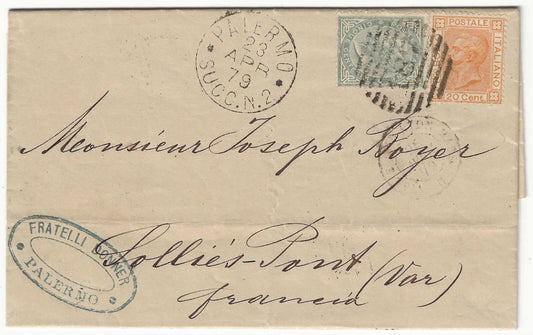 PALERMO
23
APR
79
SUCC.N.2
POSTALE
ITALIANO
20 Cent.
Monsieur Joseph Boyer
Solliés-Pont (Var)
francia
FRATELLI DONNER
PALERMO